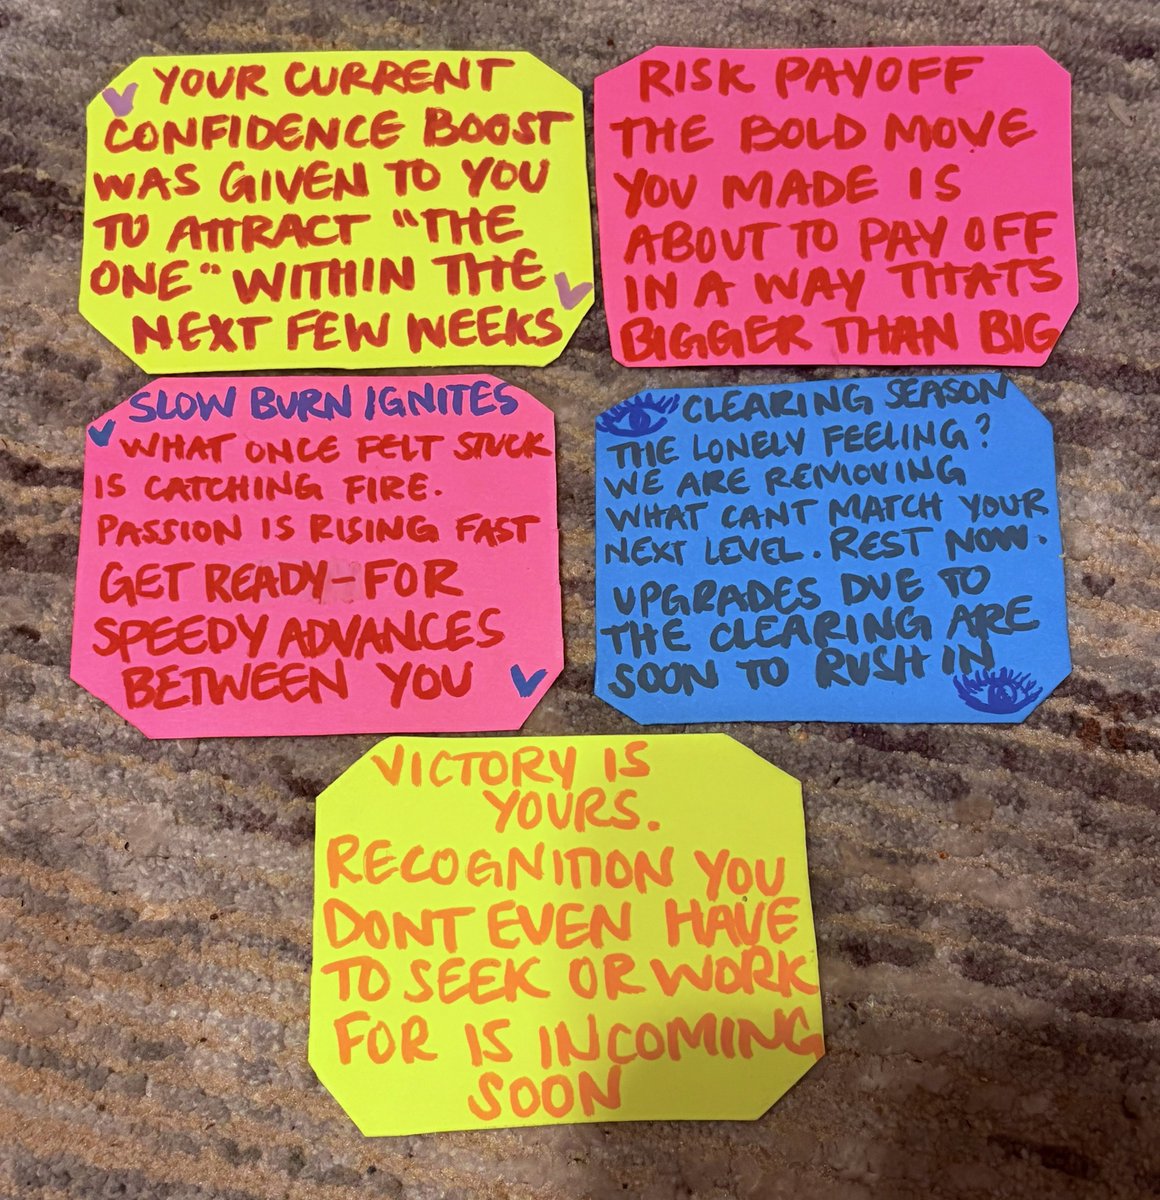 YOUR CURRENT
CONFIDENCE BOOST
WAS GIVEN TO YOU
TO ATTRACT "THE
ONE" WITHIN THE
NEXT FEW WEEKS
RISK PAYOFF
THE BOLD MOVE
YOU MADE IS
ABOUT TO PAY OFF
IN A WAY THATS
BIGGER THAN BIG
SLOW BURN IGNITES
WHAT ONCE FELT STUCK
IS CATCHING FIRE.
PASSION IS RISING FAST
GET READY-FOR
SPEEDY ADVANCES
BETWEEN YOU
CLEARING SEASON
THE LONELY FEELING?
WE ARE REMOVING
WHAT CANT MATCH YOUR
NEXT LEVEL. REST NOW.
UPGRADES DUE TO
THE CLEARING ARE
SOON TO RUSH IN
VICTORY IS
YOURS.
RECOGNITION YOU
DONT EVEN HAVE
TO SEEK OR WORK
FOR IS INCOMING
SOON